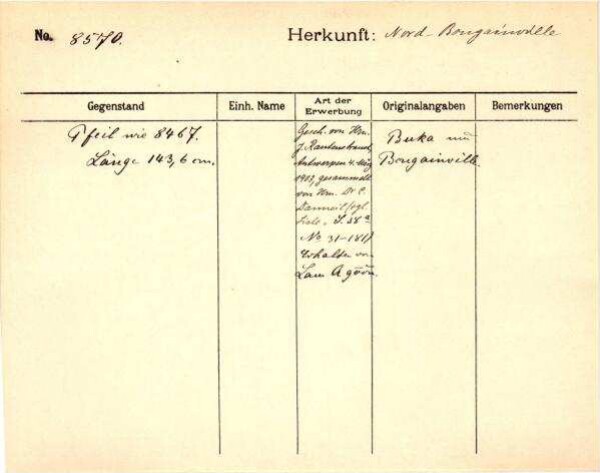 No. 8570.
Herkunft: Nord-Bougainville
Gegenstand Einh. Name Art der Erwerbung Originalangaben Bemerkungen
Pfeil wie 8467.
Länge 143,6 cm.
Gesch. von Hrn.
J.
Antwerpen 4. März
gesammelt
von Hrn. Dr. C.
No 31-181)
Erhalten von
Buka und
Bougainville.